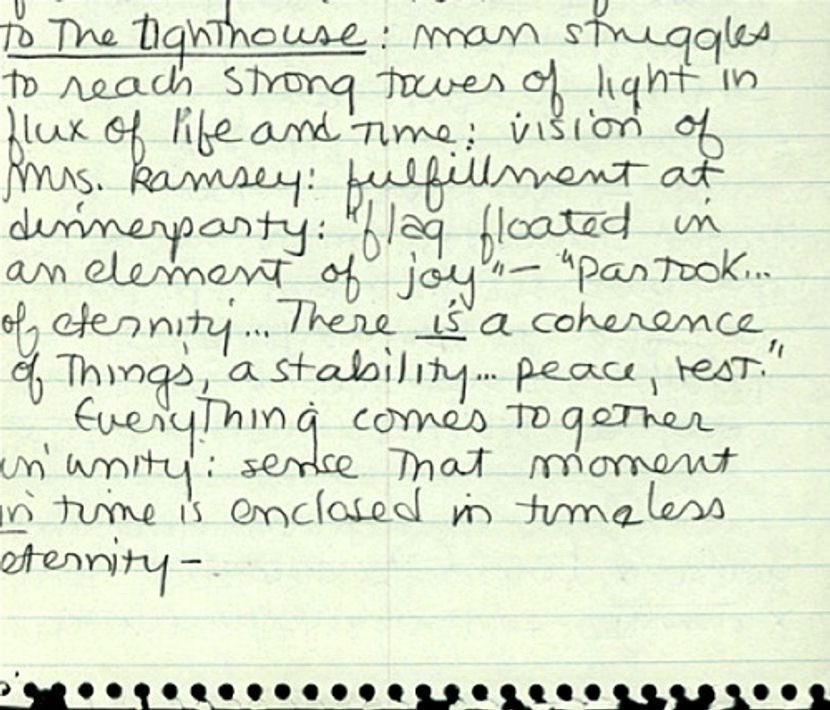 to The Lighthouse: man struggles
to reach strong tower of light in
flux of life and time: vision of
Mrs. Ramsey: fulfillment at
dinnerparty: "flag floated in
an element of joy" — "partook...
of eternity... There is a coherence
of Things, a stability... peace, rest."
Everything comes together
in unity: sense that moment
in time is enclosed in timeless
eternity -